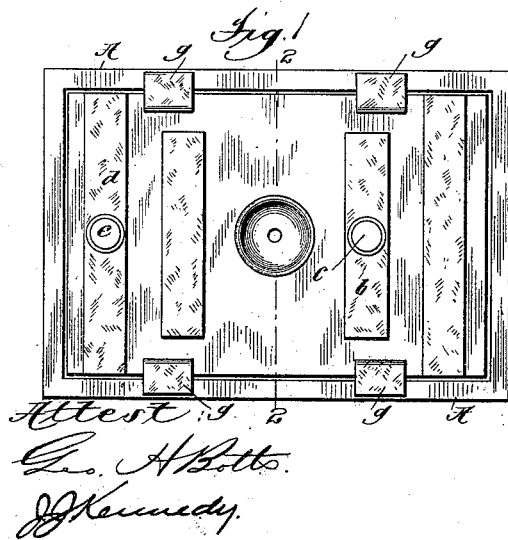 Fig. 1
A g 2 g
d
e c b
Attest: g 2 g A
Geo. H Botts.
J J Kennedy.